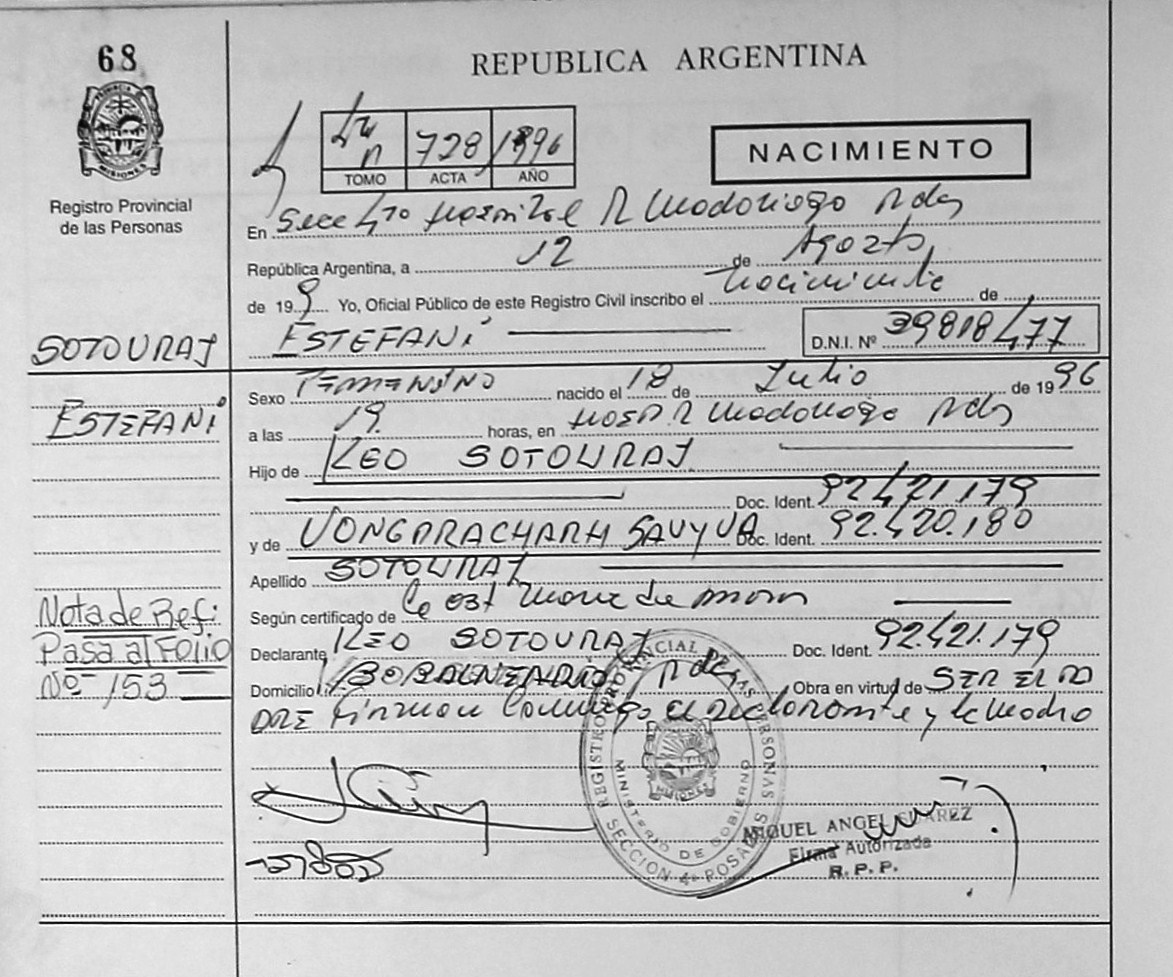 68
REPUBLICA ARGENTINA
728 1996
TOMO ACTA AÑO
NACIMIENTO
PROVINCIA DE MISIONES
Registro Provincial
de las Personas
En Secc 4to Hospital R Madariaga Pdas
República Argentina, a 12 de Agosto
de 199 Yo, Oficial Público de este Registro Civil inscribo el nacimiento de
ESTEFANÍ D.N.I. Nº 39818477
SOTOURAJ
ESTEFANÍ
Sexo FEMENINO nacido el 18 de Julio de 1996
a las 19 horas, en Hosp. R Madariaga Pdas
Hijo de KEO SOTOURAJ
Doc. Ident. 92.421.179
y de VONGPRACHARH SAVYVA Doc. Ident. 92.420.180
Apellido SOTOURAJ
Según certificado de
Nota de Refe
Pasa al Folio
Nº 153
Declarante KEO SOTOURAJ Doc. Ident. 92.421.179
Domicilio Bº BALNEARIO Pdas Obra en virtud de SER EL PA
DRE Firman Conmigo el declarante y la Madre
REGISTRO PROVINCIAL DE LAS PERSONAS
MINISTERIO DE GOBIERNO
SECCION 4ª POSADAS
MISIONES
MIGUEL ANGEL SUAREZ
Firma Autorizada
R. P. P.